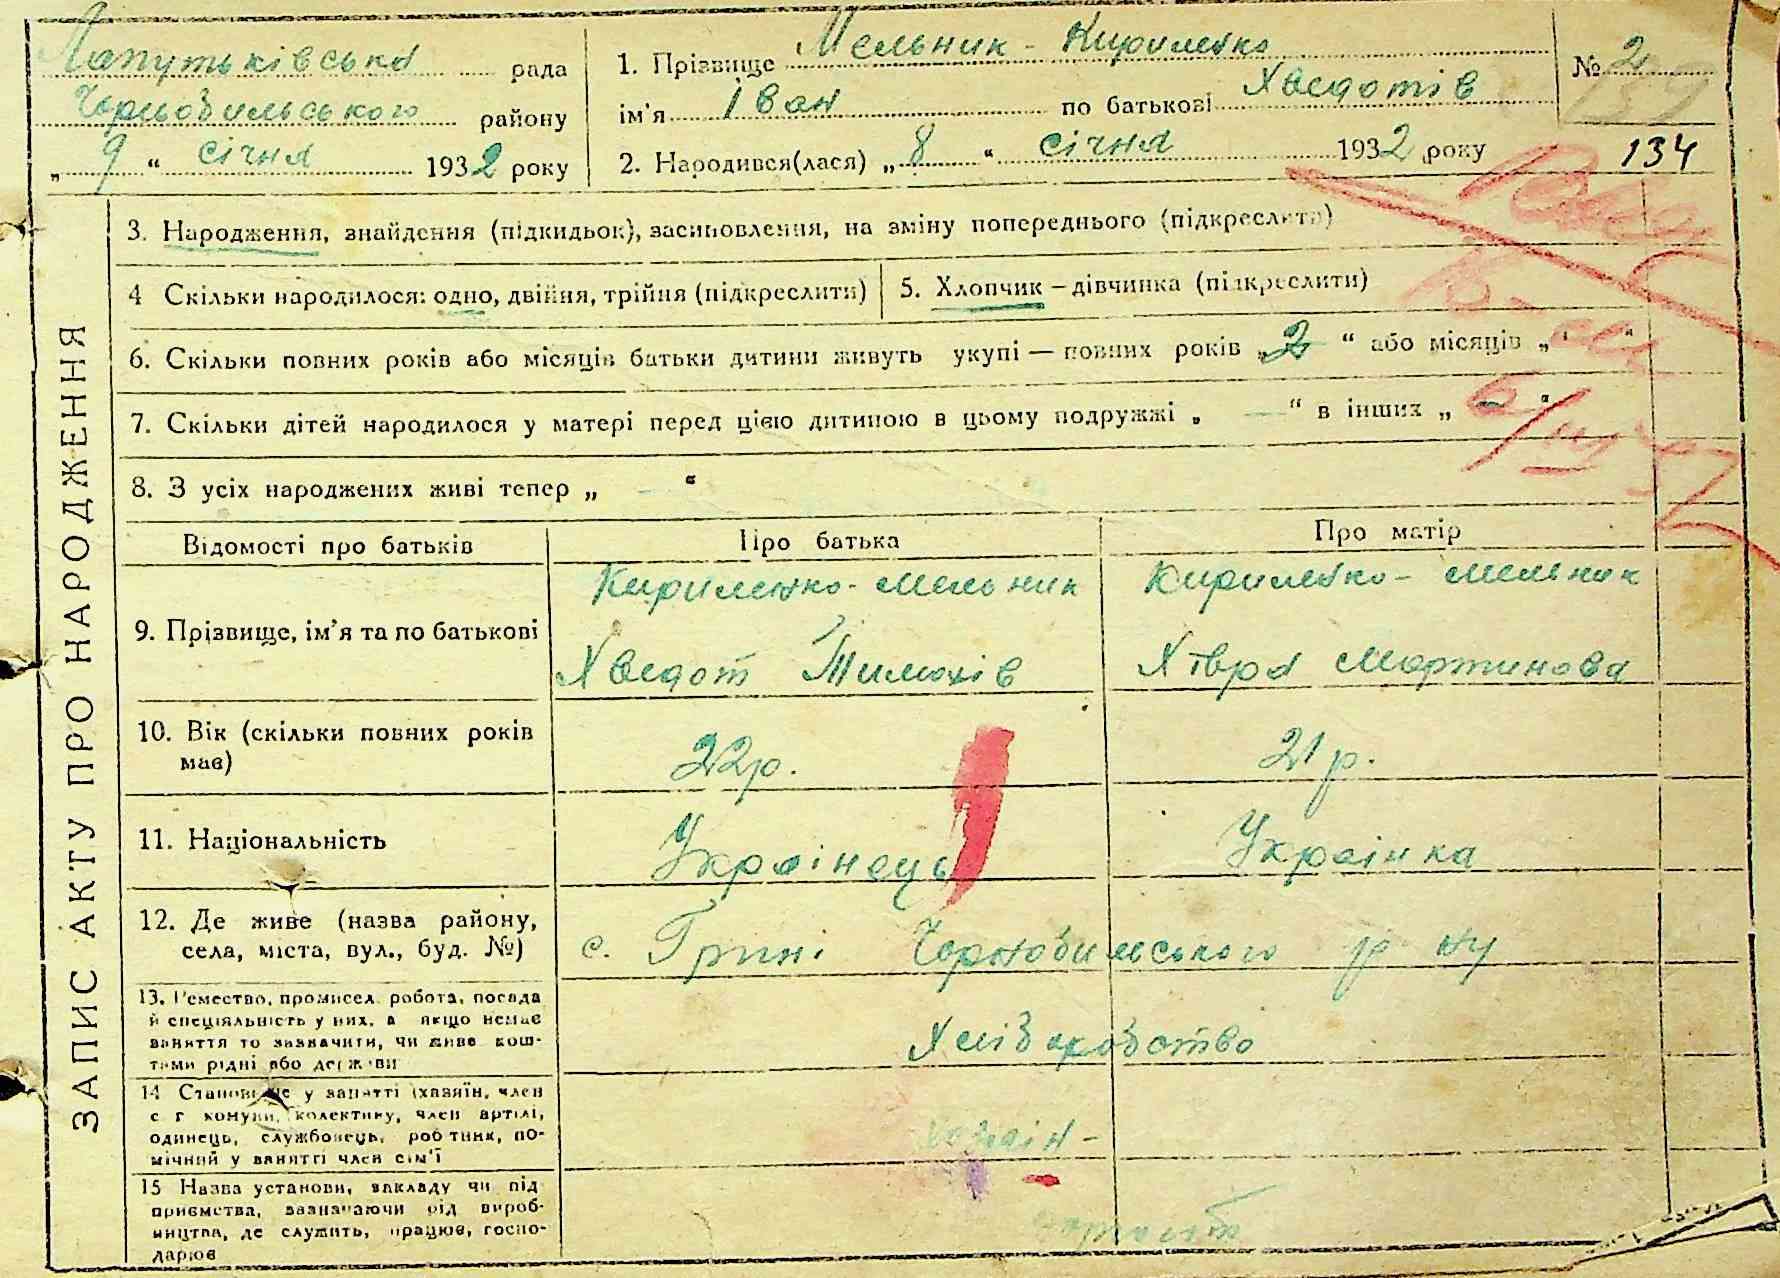 Лапутьківська рада
Чорнобильського району
„ 9 “ січня 1932 року
1. Прізвище Мельник - Кириленко
ім'я Іван по батькові Хведотів
2. Народився(лася) „ 8 “ січня 1932 року
№ 2
134
ЗАПИС АКТУ ПРО НАРОДЖЕННЯ
3. Народження, знайдення (підкидьок), засиновлення, на зміну попереднього (підкреслити)
4 Скільки народилося: одно, двійня, трійня (підкреслити)
5. Хлопчик – дівчинка (підкреслити)
6. Скільки повних років або місяців батьки дитини живуть укупі — повних років „ 2 “ або місяців „ “
7. Скільки дітей народилося у матері перед цією дитиною в цьому подружжі „ — “ в інших „ — “
8. З усіх народжених живі тепер „ — “
Відомості про батьків
Про батька
Про матір
9. Прізвище, ім'я та по батькові
Кириленко - Мельник
Хведот Тимохів
Кириленко - Мельник
Хівря Мартинова
10. Вік (скільки повних років
мав)
22 р.
21 р.
11. Національність
Українець
Українка
12. Де живе (назва району,
села, міста, вул., буд. №)
с. Грині Чорнобильського р ну
13. Ремество, промисел, робота, посада
й спеціяльність у них, а якщо немає
заняття то зазначити, чи живе кош-
тами рідні або держави
Хліборобство
14 Становище у занятті (хазяїн, член
с г комуни, колективу, член артілі,
одинець, службовець, робітник, по-
мічний у занятті член сім'ї
хазяїн -
15 Назва установи, закладу чи під
приємства, зазначаючи рід вироб-
ництва, де служить, працює, госпо-
дарює